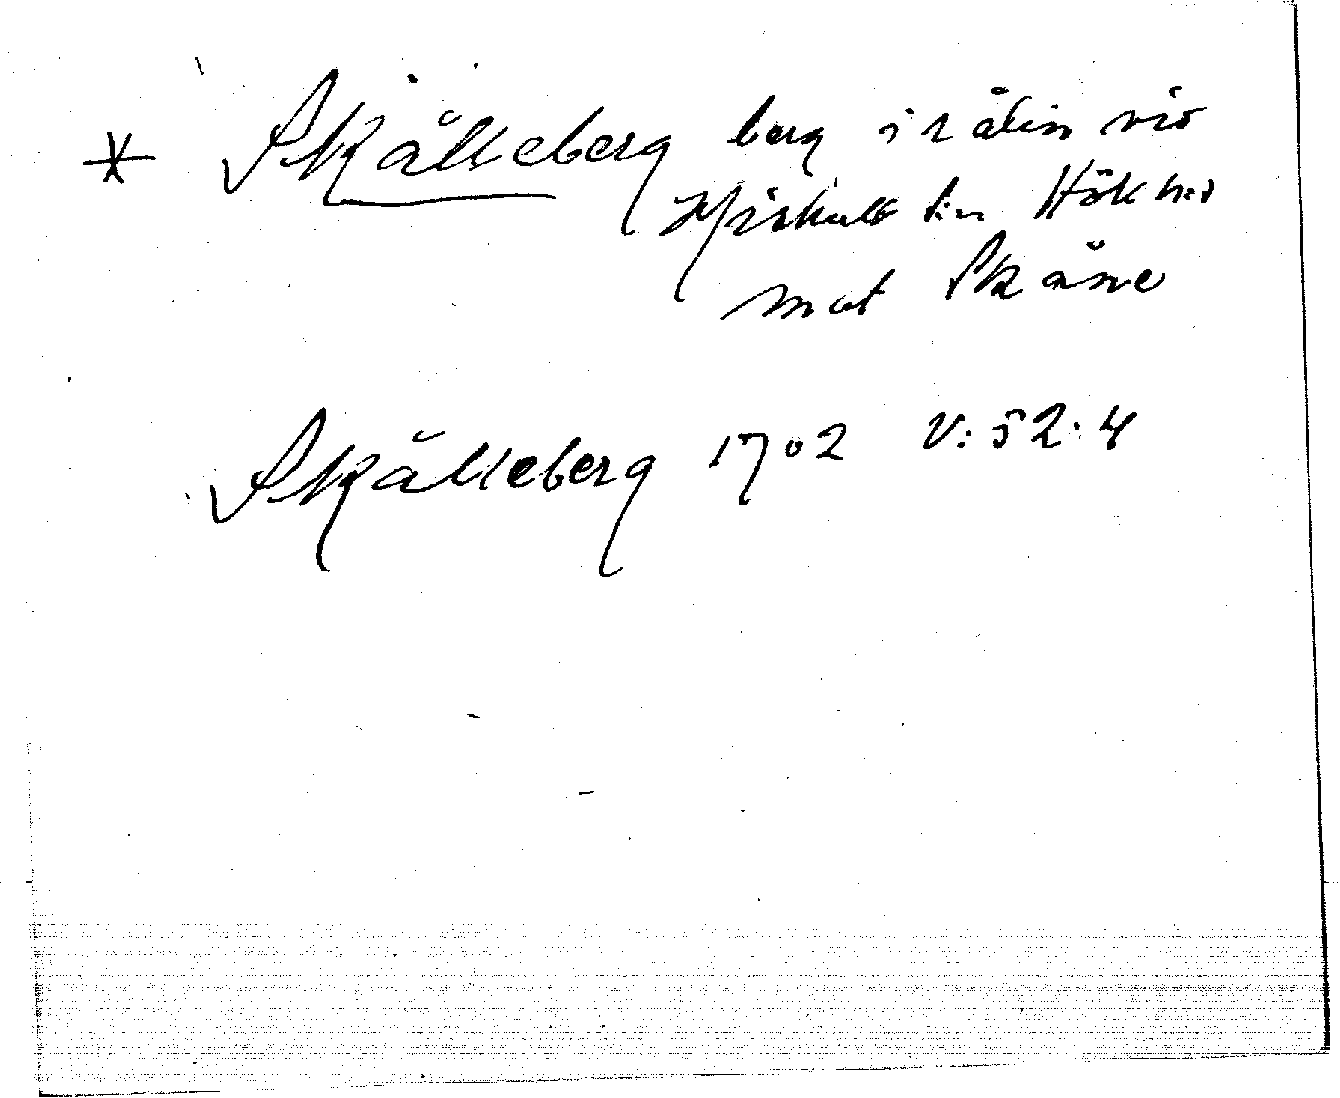 * Skälleberg berg i rålin vid
Mjshult s:n Hök h:d
mot Skåne
Skälleberg 1702 V:52:4